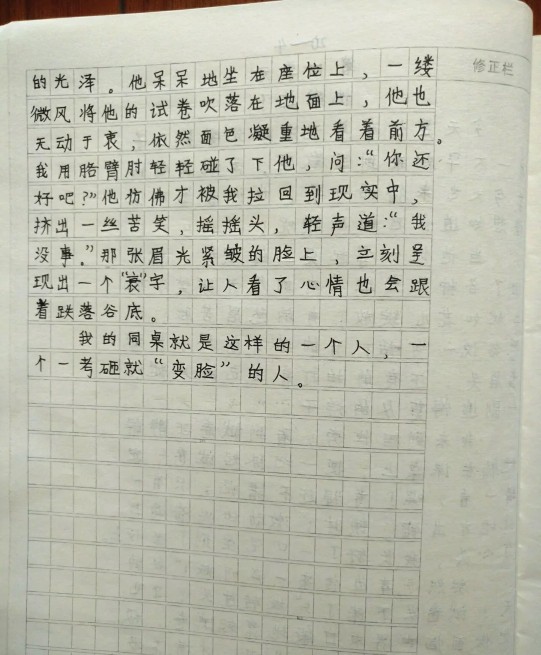 修正栏
的光泽。他呆呆地坐在座位上，一缕
微风将他的试卷吹落在地面上，他也
无动于衷，依然面色凝重地看着前方。
我用胳臂肘轻轻碰了下他，问：“你还
好吧？”他仿佛才被我拉回到现实中，
挤出一丝苦笑，摇摇头，轻声道：“我
没事。”那张眉光紧皱的脸上，立刻呈
现出一个“衰”字，让人看了心情也会跟
着跌落谷底。
我的同桌就是这样的一个人，一
个一考砸就“变脸”的人。